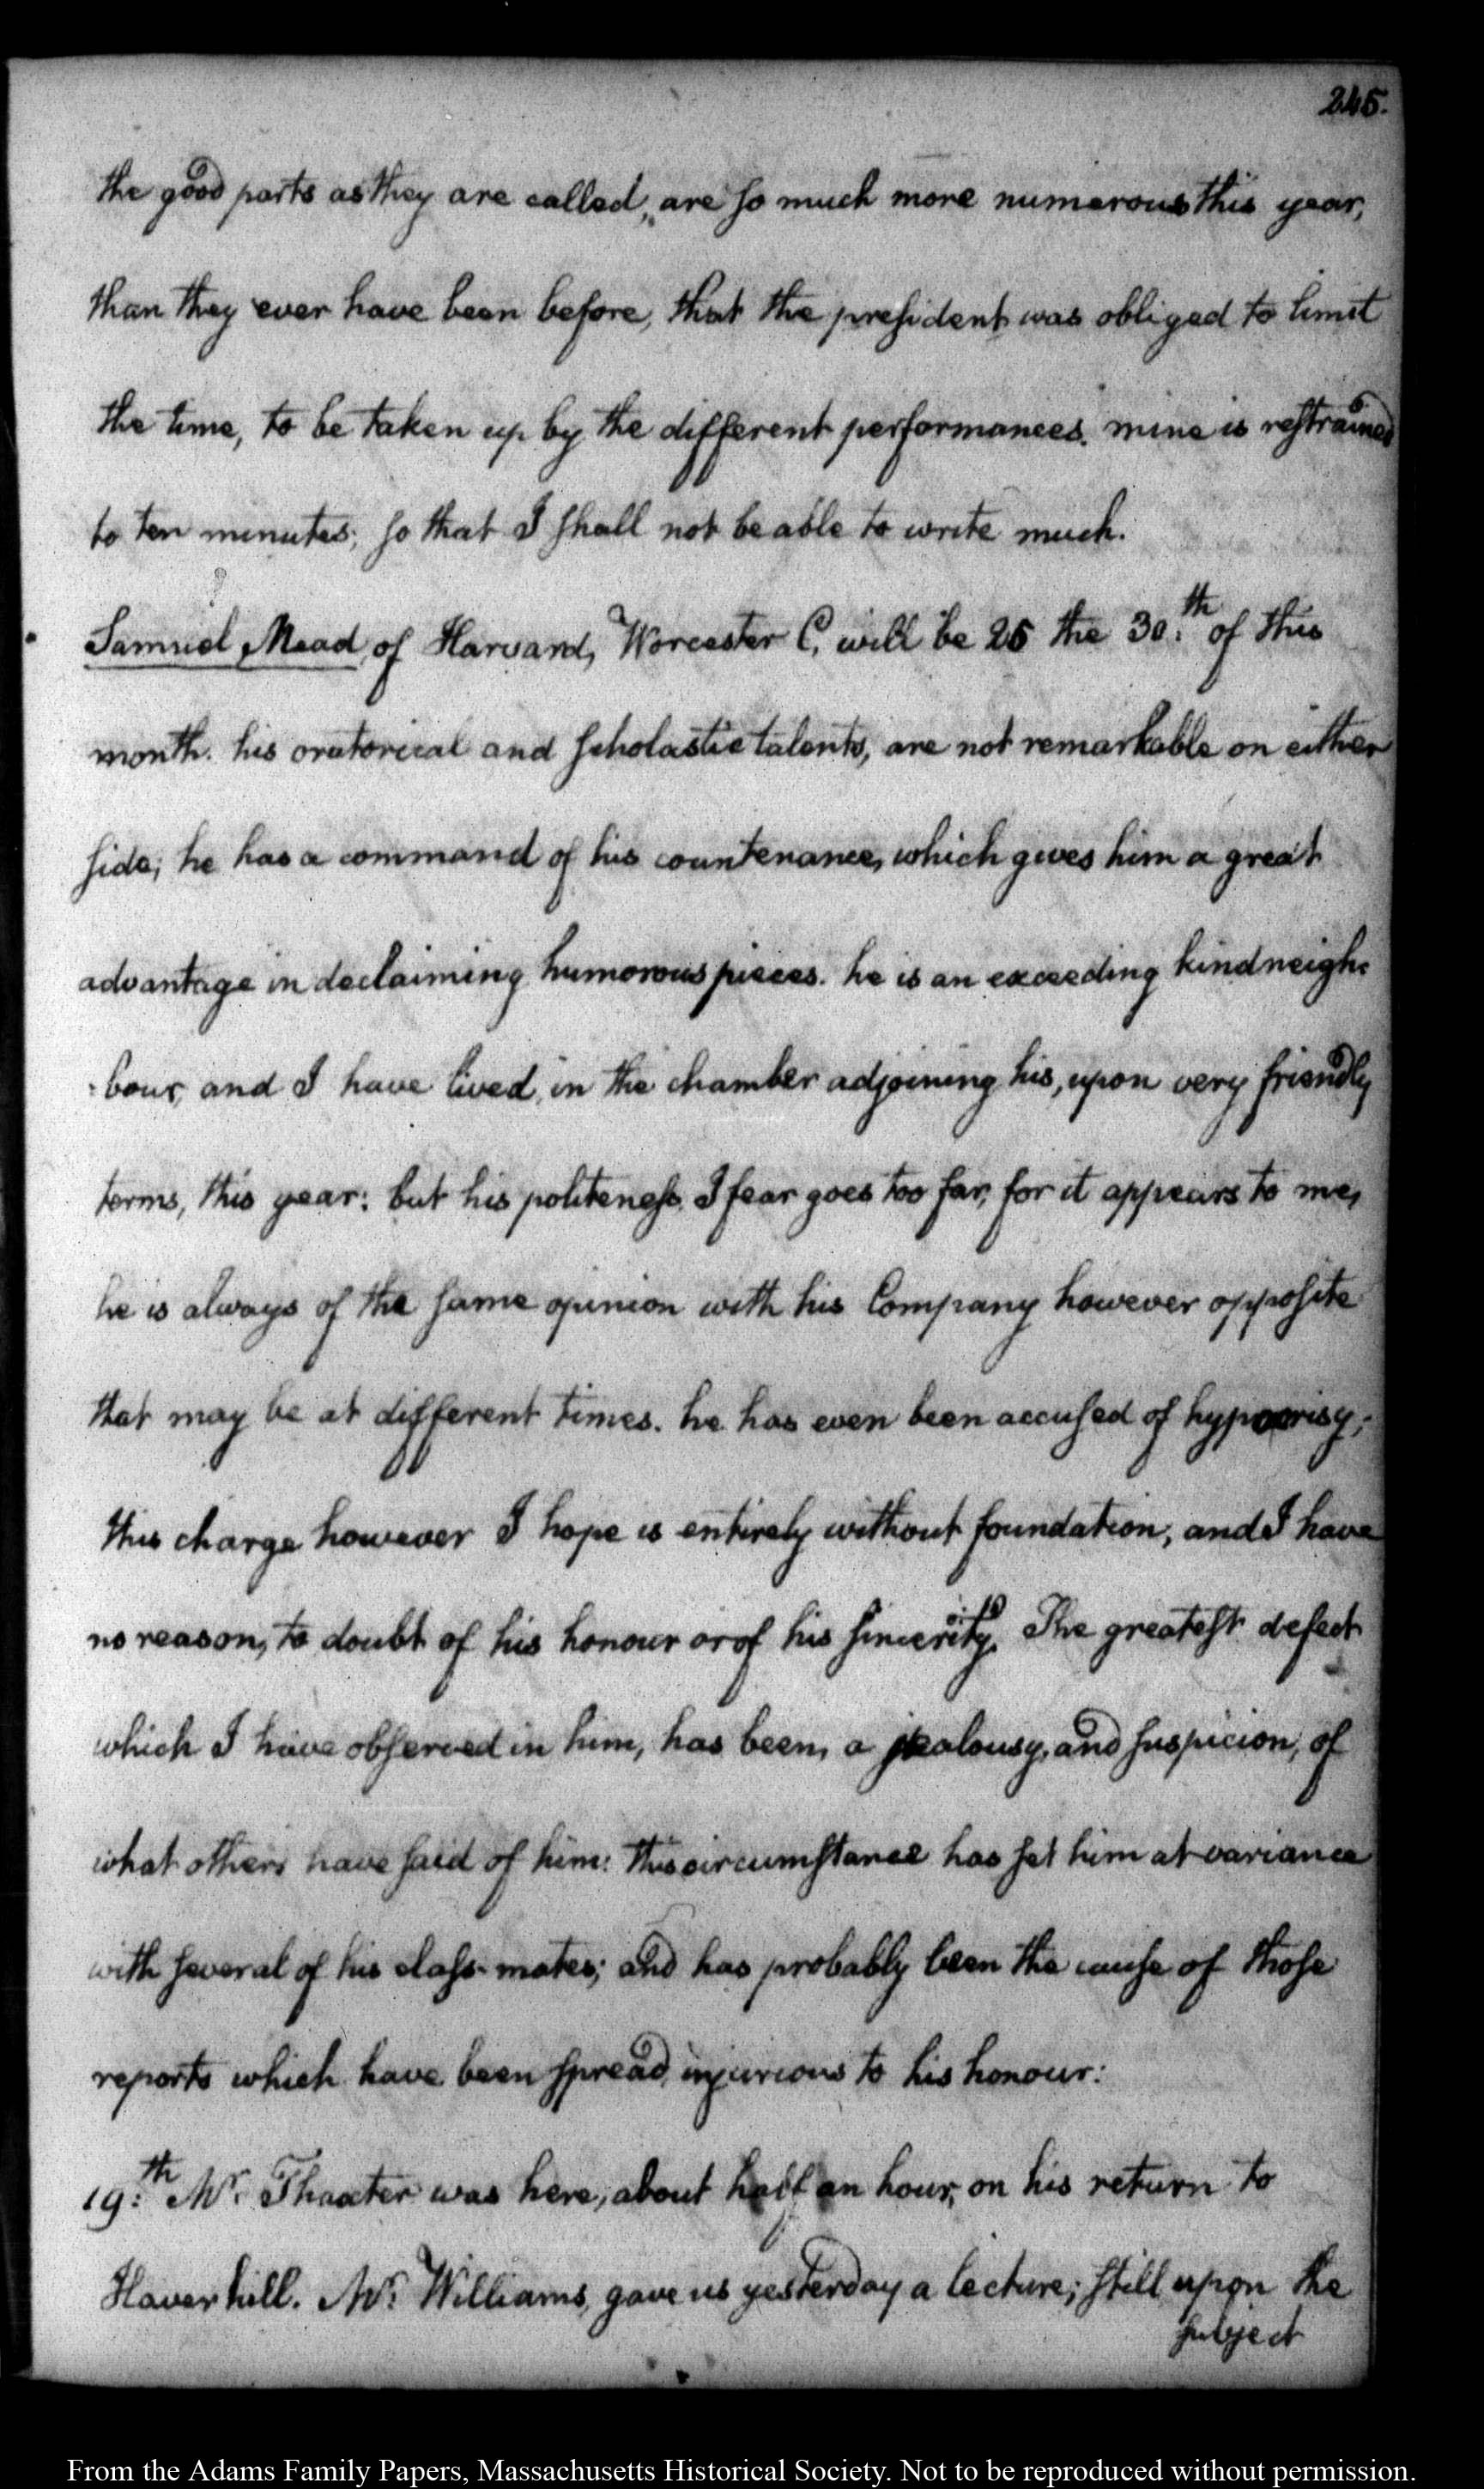 245.
the good parts as they are called, are so much more numerous this year,
than they ever have been before, that the president was obliged to limit
the time, to be taken up by the different performances. mine is restrained
to ten minutes; so that I shall not be able to write much.
Samuel Mead of Harvard, Worcester C, will be 25 the 30:th of this
month. his oratorical and scholastic talents, are not remarkable on either
side; he has a command of his countenance, which gives him a great
advantage in declaiming humorous pieces. he is an exceeding kind neigh:
:bour, and I have lived, in the chamber adjoining his, upon very friendly
terms, this year: but his politeness, I fear goes too far, for it appears to me,
he is always of the same opinion with his Company however opposite
that may be at different times. he has even been accused of hypocrisy;
this charge however I hope is entirely without foundation, and I have
no reason, to doubt of his honour or of his sincerity. The greatest defect
which I have observed in him, has been, a jealousy, and suspicion, of
what others have said of him: this circumstance has set him at variance
with several of his class-mates; and has probably been the cause of those
reports which have been spread, injurious to his honour:
19:th Mr. Thaxter was here, about half an hour, on his return to
Haverhill. Mr. Williams, gave us yesterday a lecture; still upon the
subject
From the Adams Family Papers, Massachusetts Historical Society. Not to be reproduced without permission.